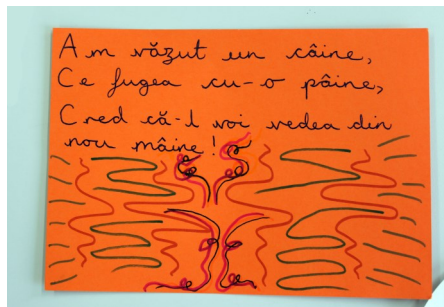 Am văzut un câine,
Ce fugea cu-o pâine,
Cred că-l voi vedea din
nou mâine!